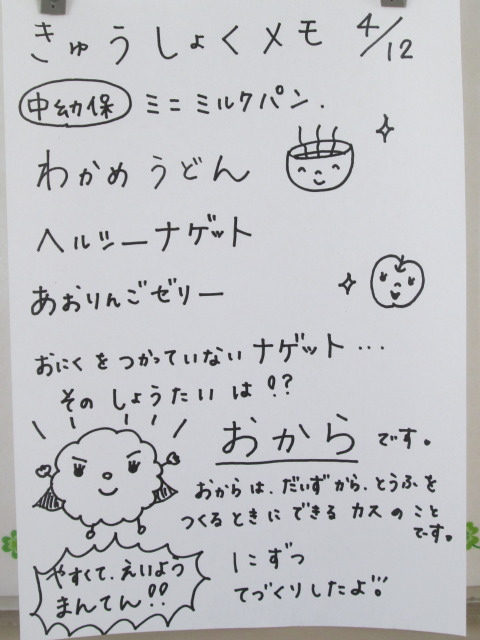 きゅうしょくメモ 4/12
中幼保 ミニミルクパン.
わかめうどん
ヘルシーナゲット
あおりんごゼリー
おにくをつかっていないナゲット…
そのしょうたいは!?
おからです。
おからは、だいずから、とうふを
つくるときにできるカスのこと
です。
やすくて、えいよう
まんてん!!
1こずつ
てづくりしたよ!!